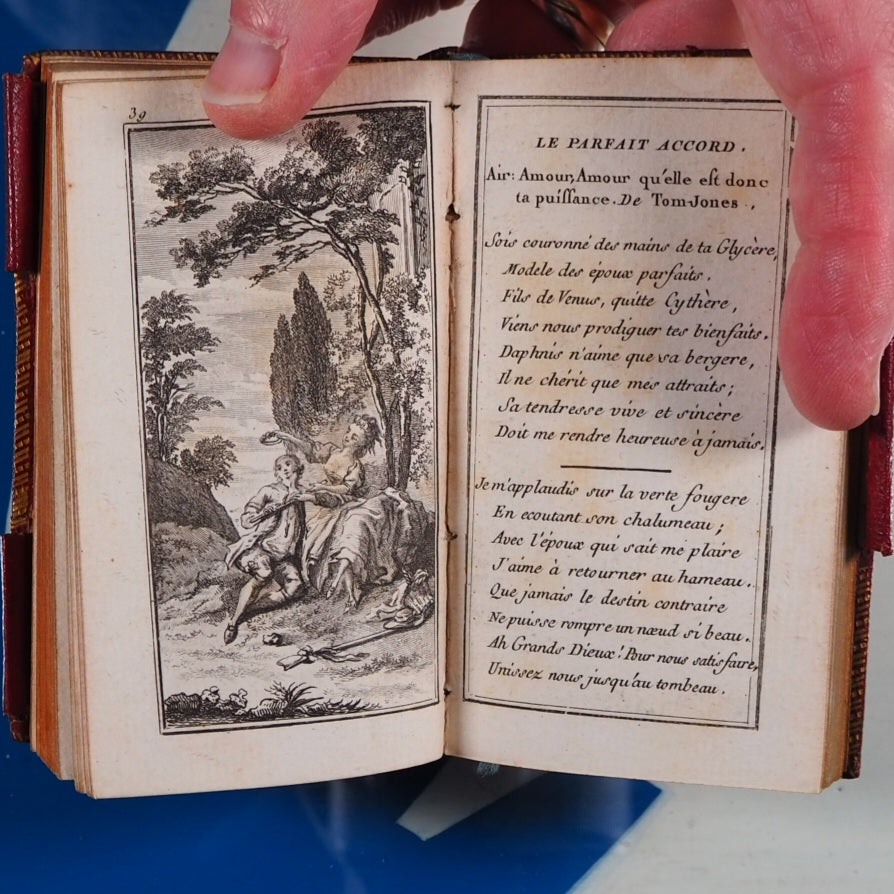 39
LE PARFAIT ACCORD.
Air: Amour, Amour qu'elle eſt donc
ta puiſſance. De Tom-Jones.
Sois couronné des mains de ta Glycère,
Modele des époux parfaits.
Fils de Venus, quitte Cythère,
Viens nous prodiguer tes bienfaits.
Daphnis n'aime que sa bergere,
Il ne chérit que mes attraits;
Sa tendresse vive et sincère
Doit me rendre heureuse à jamais.
Je m'applaudis sur la verte fougere
En ecoutant son chalumeau;
Avec l'époux qui sait me plaire
J'aime à retourner au hameau.
Que jamais le destin contraire
Ne puisse rompre un nœud si beau.
Ah Grands Dieux! Pour nous satisfaire,
Unissez nous jusqu'au tombeau.